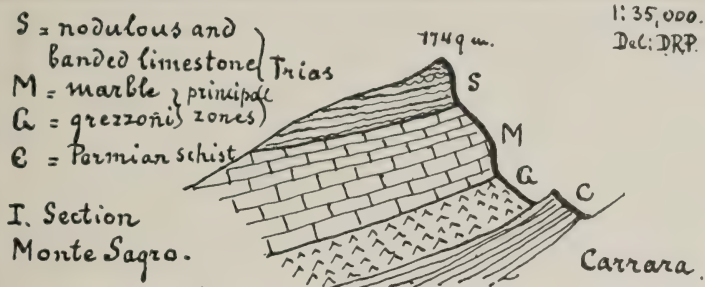 S = nodulous and
banded limestone } Trias
M = marble } principal
G = grezzoni } zones
C = Permian schist
I. Section
Monte Sagro.
1749 m.
S
M
G
C
Carrara.
1:35,000.
Del: D.R.P.